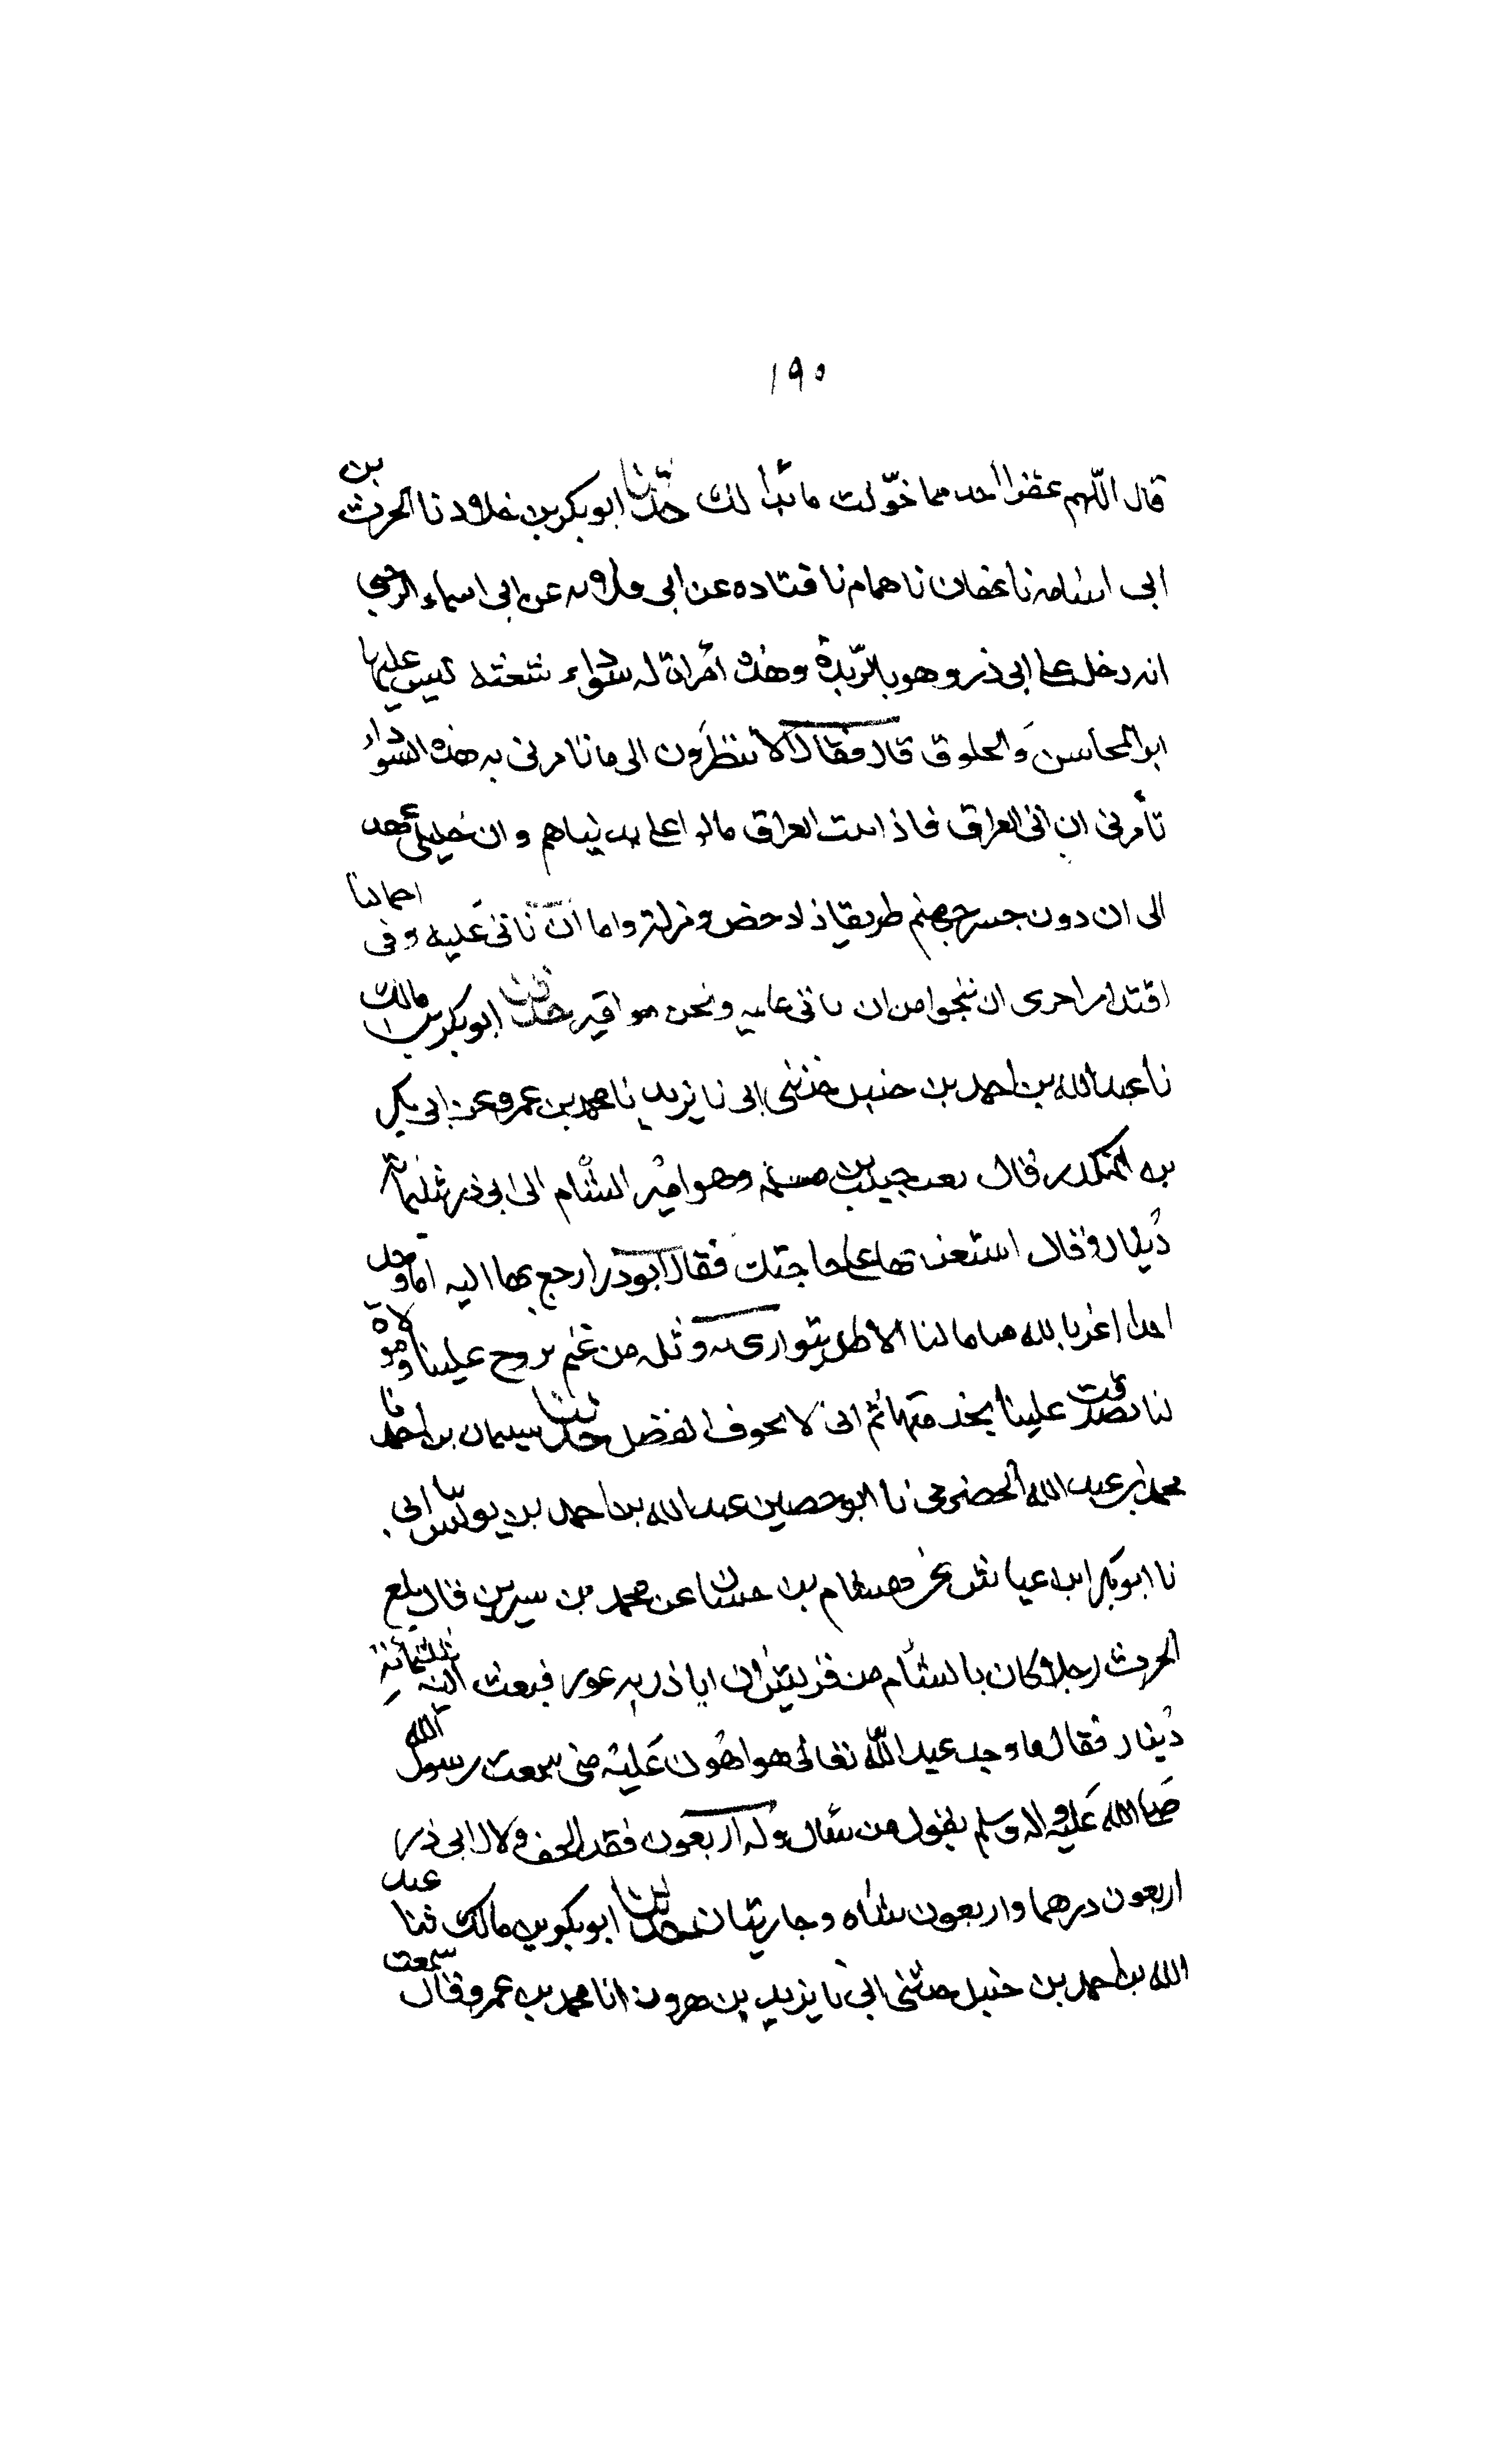 ١٩٠
قال اللهم عفرا احد مما خولت ما بدا لك حدثنا ابو بكر بن خلاد نا الحرث بن
ابى اسامه نا عفان نا همام نا قتاده عن ابى قلابه عن ابى اسماء الرحبى
انه دخل على ابى ذر وهو بالربذة وهذه امراة له سوداء شعثه ليس عليها
اثر المحاسن والخلوق قال فقال الا تنظرون الى ما تامرنى به هذه السوداء
تأمرنى ان اتى العراق فاذا اتيت العراق مالوا على بدنياهم وان خليلى عهد
الى ان دون جسر جهنم طريقا ذا دحض ومزلة وانا ان ناتى عليه وفى احمالنا
اقتدار احرى ان ننجوا من ان ناتى عليه ونحن مواقير حدثنا ابو بكر بن مالك
نا عبد الله بن احمد بن حنبل حدثنى ابى نا يزيد نا محمد بن عمرو عن ابى بكر
بن المنكدر قال بعث حبيب بن مسلمه وهو امير الشام الى ابى ذر ثلثمائة
دينار وقال استعن بها على حاجتك فقال ابو ذر ارجع بها اليه اما وجد
احدا اغر بالله منا ما لنا الا ظل نتوارى به وثله من غنم تروح علينا ومولاة
لنا تصدقت علينا بخدمتها ثم انى لا تخوف الفضل حدثنا سليمان بن احمد نا
محمد بن عبد الله الحضرمى نا ابو حصين عبد الله بن احمد بن يونس نا ابى
نا ابو بكر بن عياش عن هشام بن حسان عن محمد بن سيرين قال بلغ
الحرث رجلا كان بالشام من قريش ان ابا ذر به عوز فبعث اليه ثلثمائة
دينار فقال ما وجد عبد الله تعالى هو اهون عليه منى سمعت رسول الله
صلى الله عليه واله وسلم يقول من سأل وله اربعون فقد الحف ولال ابى ذر
اربعون درهما واربعون شاه وجاريتان حدثنا ابو بكر بن مالك ثنا عبد
الله بن احمد بن حنبل حدثنى ابى نا يزيد بن هرون انا محمد بن عمرو قال سمعت